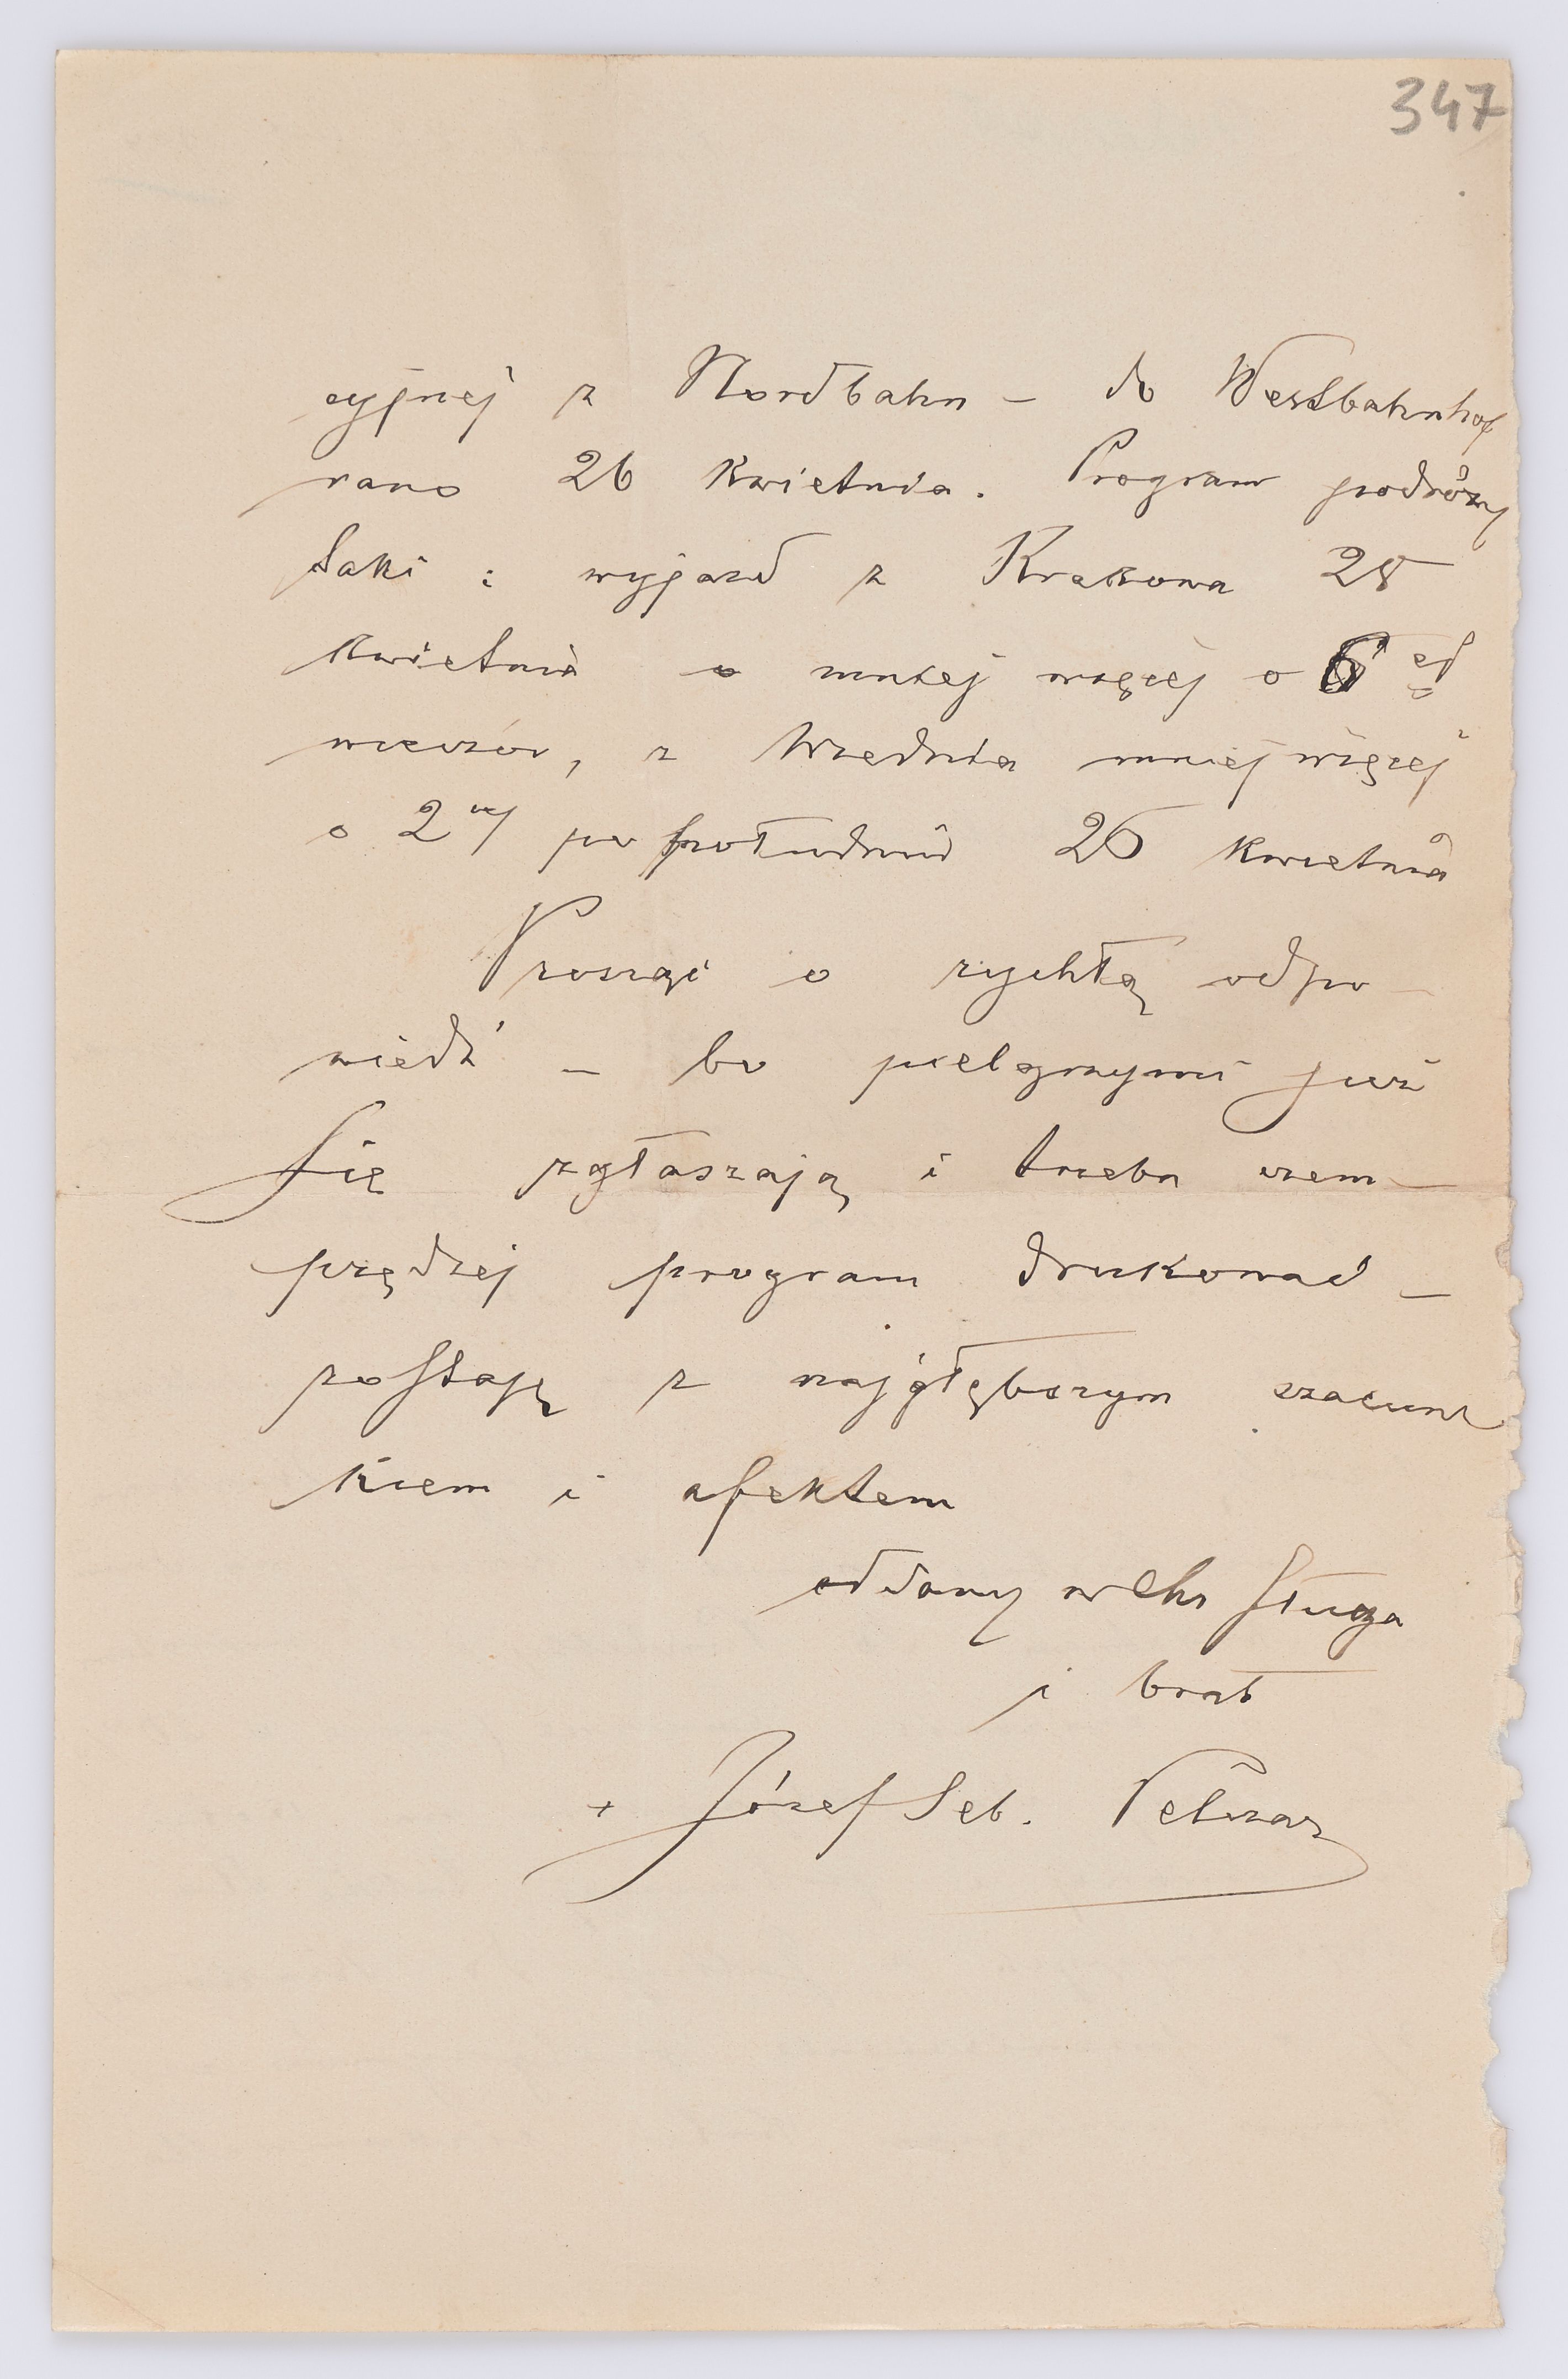 347
cyjnej z Nordbahn – do Westbahnhof
rano 26 kwietnia. Program podróży
taki: wyjazd z Krakowa 25
kwietnia o mniej więcej o 6 ej
wieczór, z Wiednia mniej więcej
o 2ej po południu 26 kwietnia
Proszę o rychłą odpo-
wiedź – bo pielgrzymi już
się zgłaszają i trzeba czem-
prędzej program drukować –
zostaję z najgłębszym szacun
kiem i afektem
oddany w Chr sługa
i brat
+ Józef Seb. Pelczar